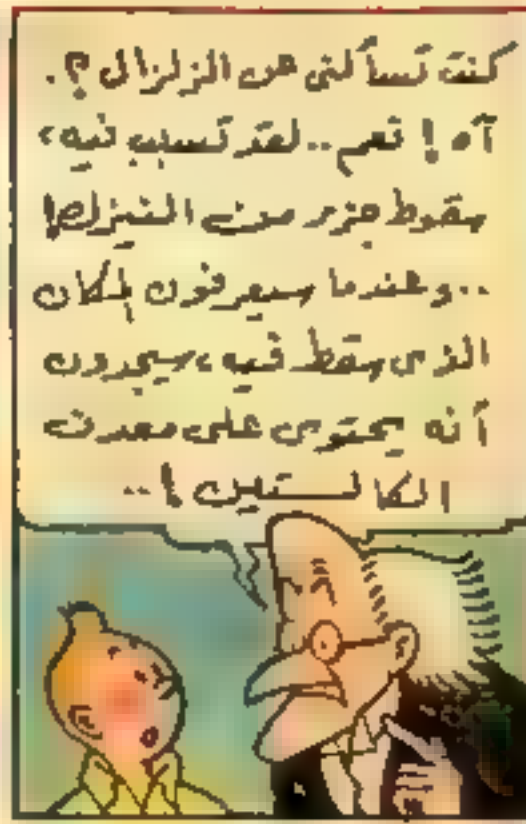 كنت تسألني عن الزلزال ؟.
آه ! نعم .. لقد تسبب فيه ،
سقوط جزء من النيزك !
.. وعندما سيعرفون المكان
الذى سقط فيه ، سيجدون
أنه يحتوى على معدن
الكالستين ! ..